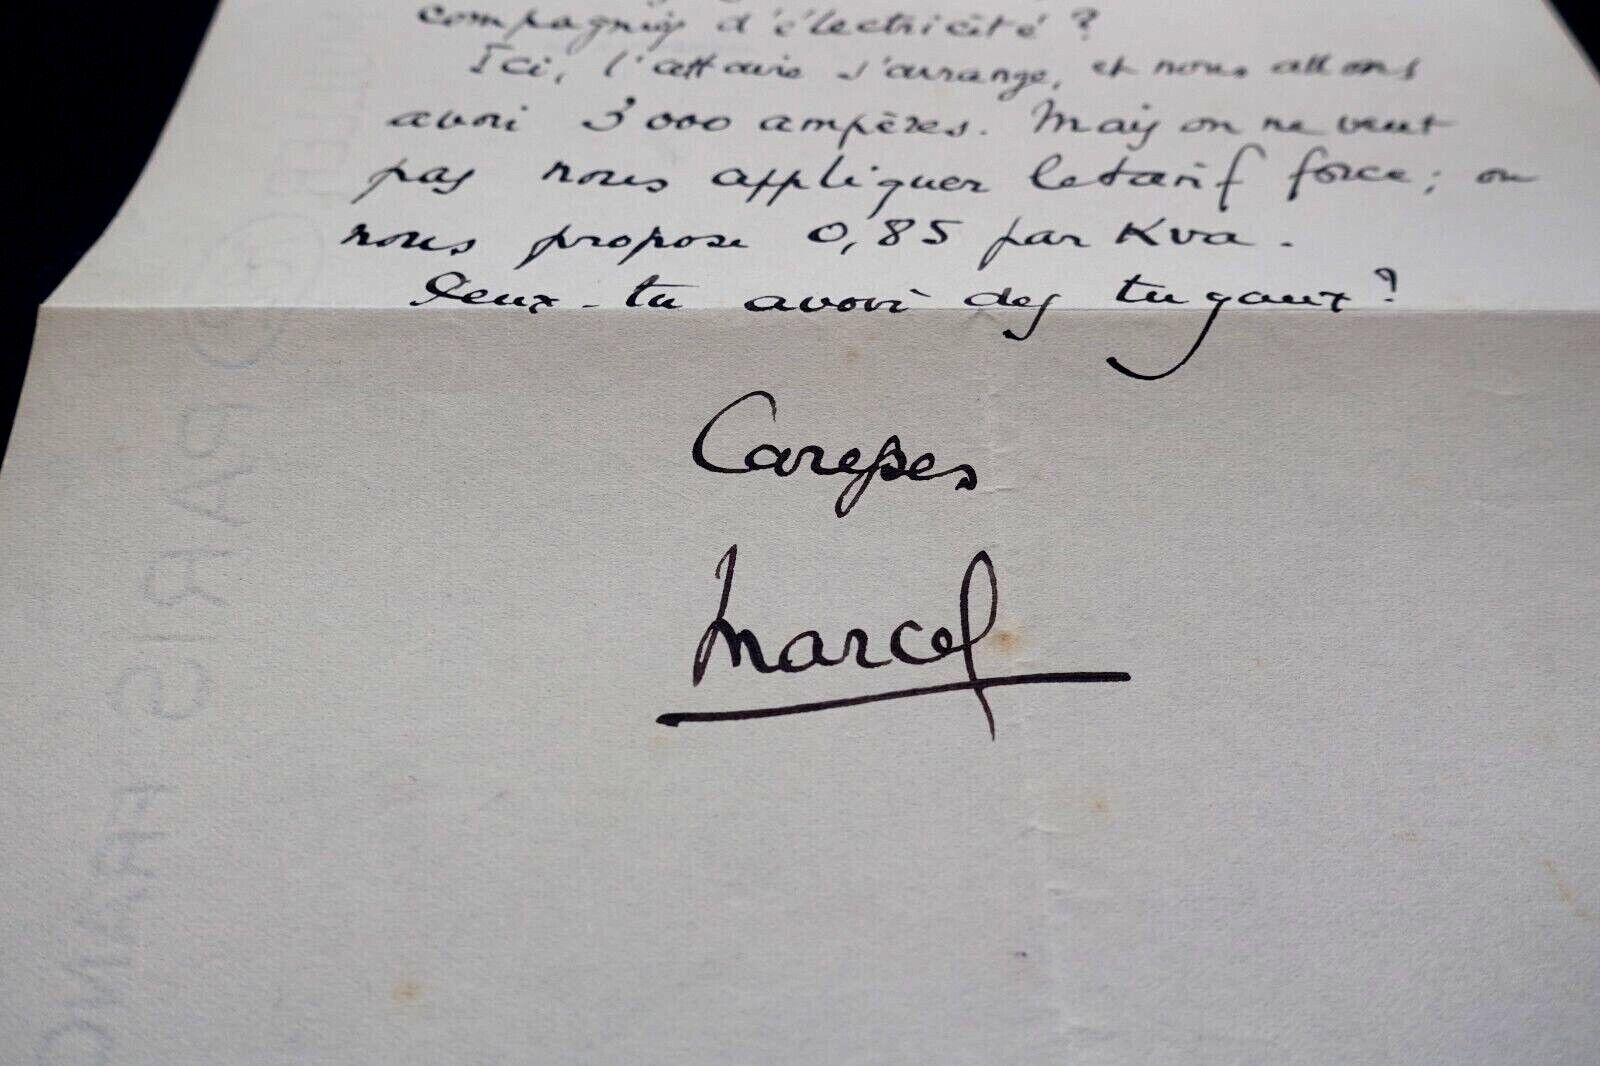 compagnies d'électricité ?
Ici, l'affaire s'arrange, et nous allons
avoir 3000 ampères. Mais on ne veut
pas nous appliquer le tarif force ; on
nous propose 0,85 par Kva.
Peux-tu avoir des tuyaux ?
Caresses
Marcel
PARIS